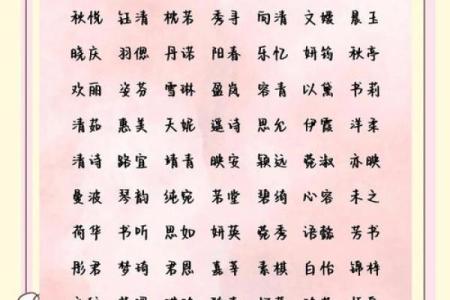 秋悦 钰清 枕若 秀寻 向清 文媛 晨玉
晓庆 羽偲 丹诺 阳春 乐忆 妍筠 秋亭
欢丽 姿芬 雪琳 盈岚 容青 以黛 书莉
清茹 惠美 天妮 遥诗 思允 伊霞 洋柔
清诗 路宜 婧青 映安 颖远 菀淑 亦映
曼波 琴韵 纯宛 若堂 碧绮 心容 未之
荷华 书听 思如 妍英 菀秀 语懿 芳书
彤君 梦琦 君恩 嘉莘 素棋 白怡 锦梓